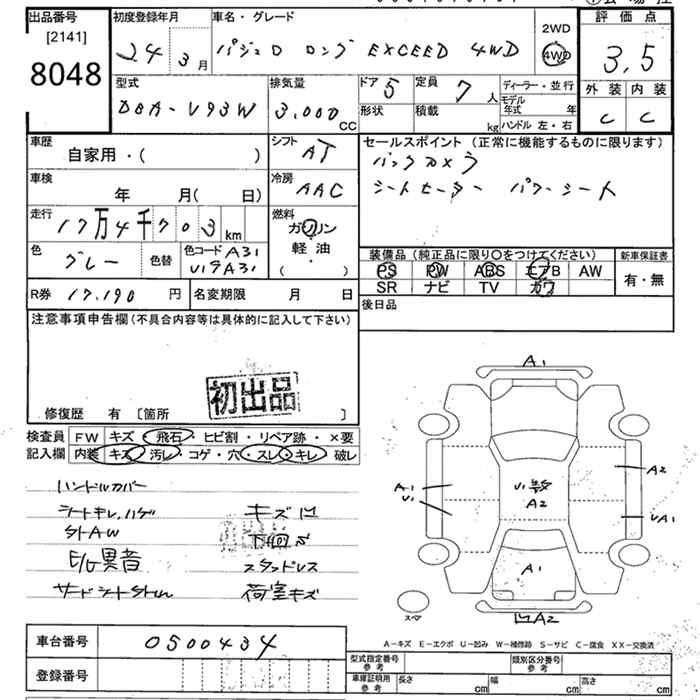 出品番号 初度登録年月 車名・グレード 2WD 評価点
[2141] 8048 24 3月 パジェロ ロング EXCEED 4WD 4WD 3.5
外装 内装
C C
型式 排気量 ドア 5 定員 7人 ディーラー・並行
DBA-V93W 3,000 CC 形状 積載 kg モデル年式 年
ハンドル 左・右
車歴 シフト セールスポイント (正常に機能するものに限ります)
自家用・( ) AT バックカメラ
車検 冷房 シートヒーター パワーシート
年 月( 日) AAC
走行 17万4千703km 燃料
ガソリン
軽・油
( )
色 グレー 色替 色コード A31
U19A31
装備品 (純正品に限り〇をつけてください) 新車保証書
PS PW ABS エアB AW 有・無
SR ナビ TV ガワ
R券 17,190 円 名変期限 月 日
後日品
注意事項申告欄(不具合内容等は具体的に記入して下さい)
初出品
修復歴 有 [箇所 ]
検査員 FW キズ・飛石・ヒビ割・リペア跡・×要
記入欄 内装 キズ・汚レ・コゲ・穴・スレ・キレ・破レ
ハンドルカバー
シートキレ,ハゲ キズ凹
ストAW 下回サ
E/G異音 スタッドレス
サードシートストum 荷室キズ
A1
A1 U1 A2
U1 A2 UA1
A1
スペア 凹A2
A-キズ E-エクボ U-凹み W-補修跡 S-サビ C-腐食 XX-交換済
車台番号 0500434
登録番号
型式指定番号 参考 類別区分番号 参考
車庫証明用 参考 長さ cm 幅 cm 高さ cm